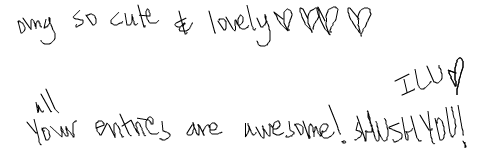 omg so cute & lovely♡♡♡♡
ILU♡
all
Your entries are awesome! SHUSH YOU!